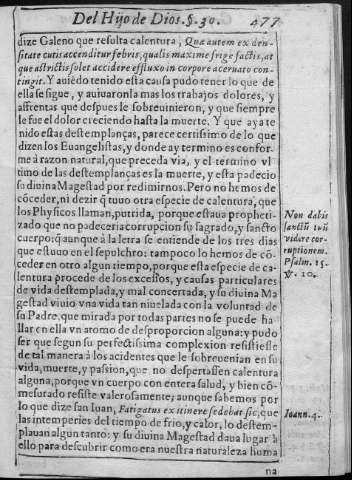 Del Hijo de Dios. §. 30. 477
dize Galeno que resulta calentura, Quæ autem ex den-
sitate cutis accenditur febris, qualis maxime frige factis, at
que astrictis solet accidere effluxo in corpore aceruato con-
tingit. Y auiēdo tenido esta causa pudo tener lo que de
ella se sigue, y auiuaronla mas los trabajos dolores, y
afrentas que despues le sobreuinieron, y que siempre
le fue el dolor creciendo hasta la muerte. Y que aya te
nido estas destemplanças, parece certissimo de lo que
dizen los Euangelistas, y donde ay termino es confor-
me à razon natural, que preceda via, y el termino vl
timo de las destemplanças es la muerte, y esta padecio
su diuina Magestad por redimirnos. Pero no hemos de
cōceder, ni dezir q̄ tuuo otra especie de calentura, que
los Physicos llaman, putrida, porque estaua propheti-
zado que no padeceria corrupcion su sagrado, y sancto
cuerpo: q̄ aunque à la letra se entiende de los tres dias
que estuuo en el sepulchro: tampoco lo hemos de cō-
ceder en otro algun tiempo, porque esta especie de ca-
lentura procede de los excessos, y causas particulares
de vida destemplada, y mal concertada, y su diuina Ma
gestad viuio vna vida tan niuelada con la voluntad de
su Padre, que mirada por todas partes no se puede ha
llar en ella vn atomo de desproporcion alguna: y pudo
ser que segun su perfectissima complexion resistiesse
de tal manera à los acidentes que le sobreuenian en su
vida, muerte, y passion, que no despertassen calentura
alguna, porque vn cuerpo con entera salud, y bien cō-
mesurado resiste valerosamente; aunque sabemos por
lo que dize san Iuan, Fatigatus ex itinere sedebat sic, que
las intemperies del tiempo de frio, y calor, lo destem-
plauan algun tanto: y su diuina Magestad daua lugar à
ello para descubrir como era nuestra naturaleza huma
na
Non dabis
sanctū tuū
videre cor-
ruptionem.
Psalm. 15.
℣. 10.
Ioann. 4.